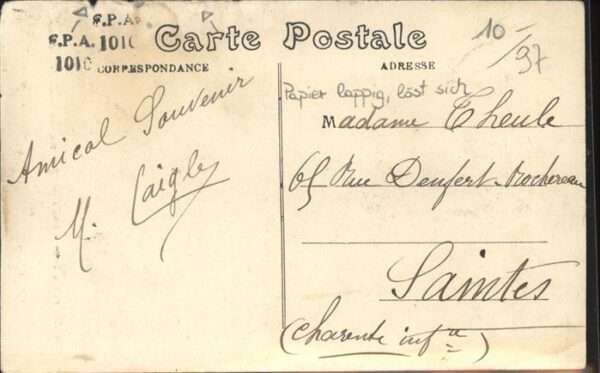 F.P.A.
F.P.A. 1010
1010
Carte Postale
CORRESPONDANCE
ADRESSE
10-/97
Papier lappig, löst sich
Amical Souvenir
M. Caigle
Madame Theule
65 Rue Denfert-Rochereau
Saintes
(Charente infre)